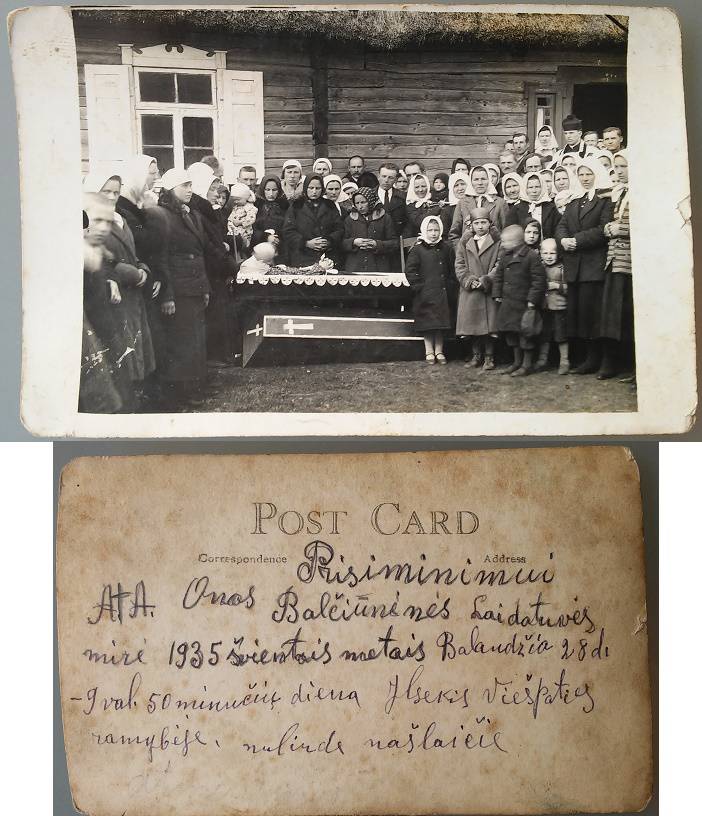 POST CARD
Correspondence Address
Prisiminimui
A†A. Onos Balčiūnėnės Laidatuvės
mirė 1935 šventais metais Balandžio 28 d.
- 9 val. 50 minučių diena Ilsekis Viešpaties
ramybėje. nulinde našlaičie